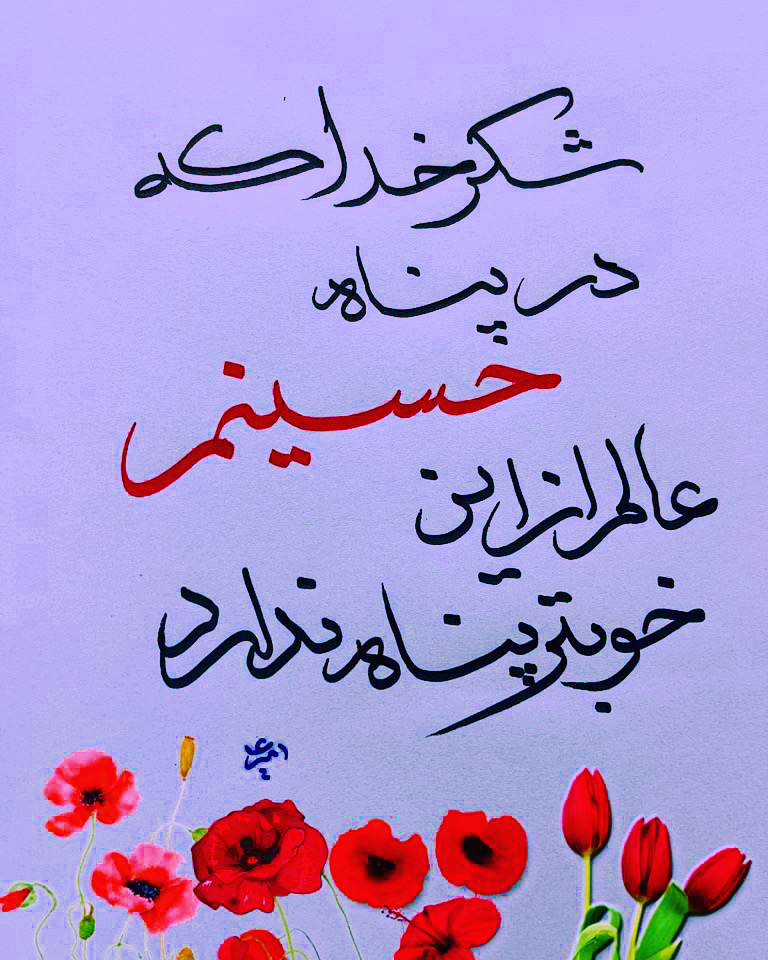 شکر خدا که
در پناه
حسینم
عالم از این
خوبتر پناه ندارد
امیرعلی